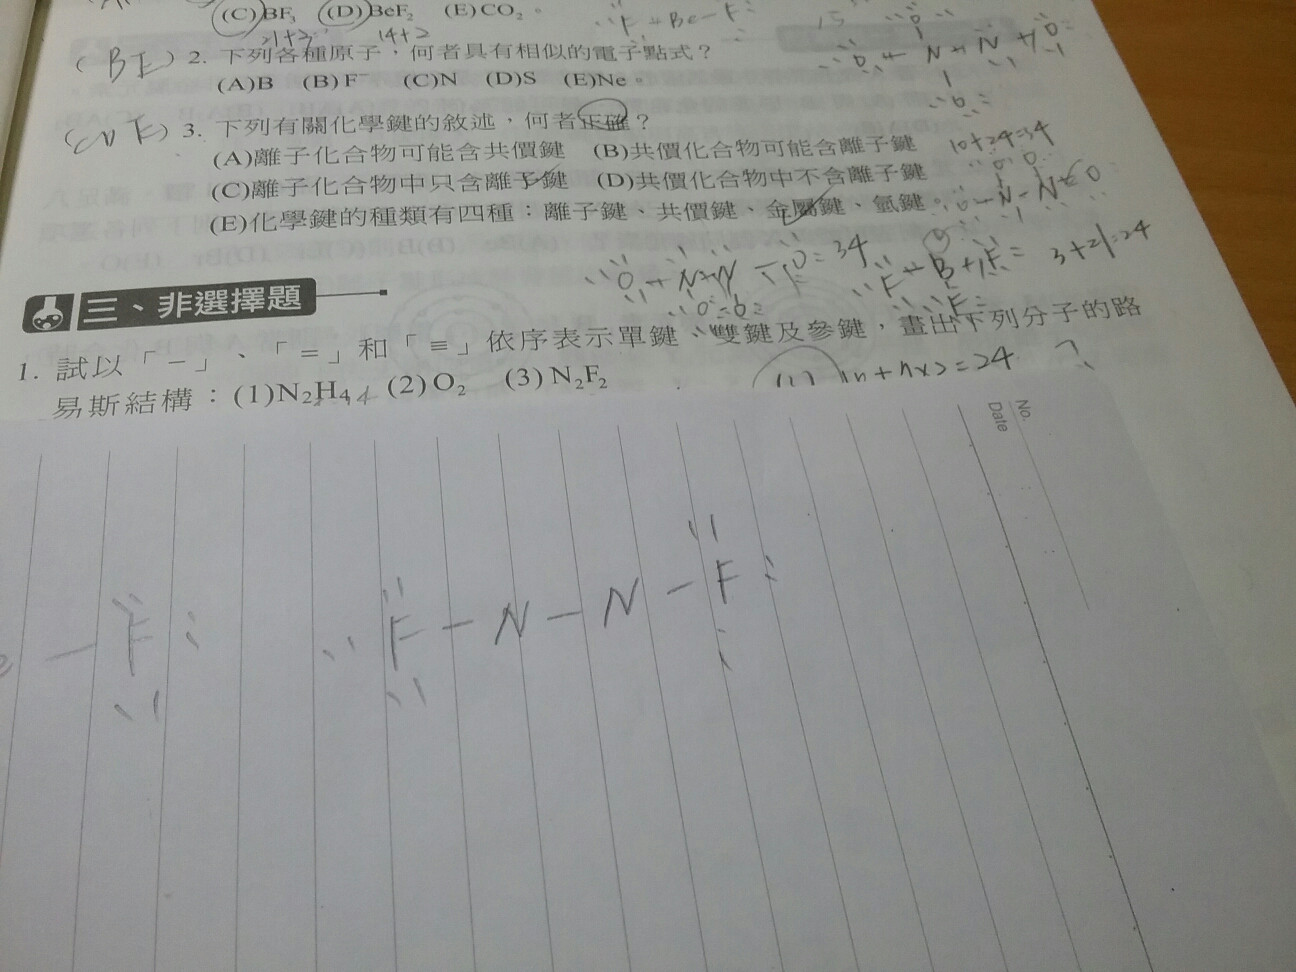 (C)BF₃ (D)BeF₂ (E)CO₂。
21+3 14+2
:F-Be-F:
15
(BE) 2. 下列各種原子，何者具有相似的電子點式？
(A)B (B)F⁻ (C)N (D)S (E)Ne。
3. 下列有關化學鍵的敘述，何者正確？
(A)離子化合物可能含共價鍵 (B)共價化合物可能含離子鍵
10+24=34
(C)離子化合物中只含離子鍵 (D)共價化合物中不含離子鍵
(E)化學鍵的種類有四種：離子鍵、共價鍵、金屬鍵、氫鍵。
=34
3+21=24
三、非選擇題
1. 試以「－」、「＝」和「≡」依序表示單鍵、雙鍵及參鍵，畫出下列分子的路
易斯結構：(1)N₂H₄ (2)O₂ (3)N₂F₂
=24
No.
Date
-F: :F-N-N-F: